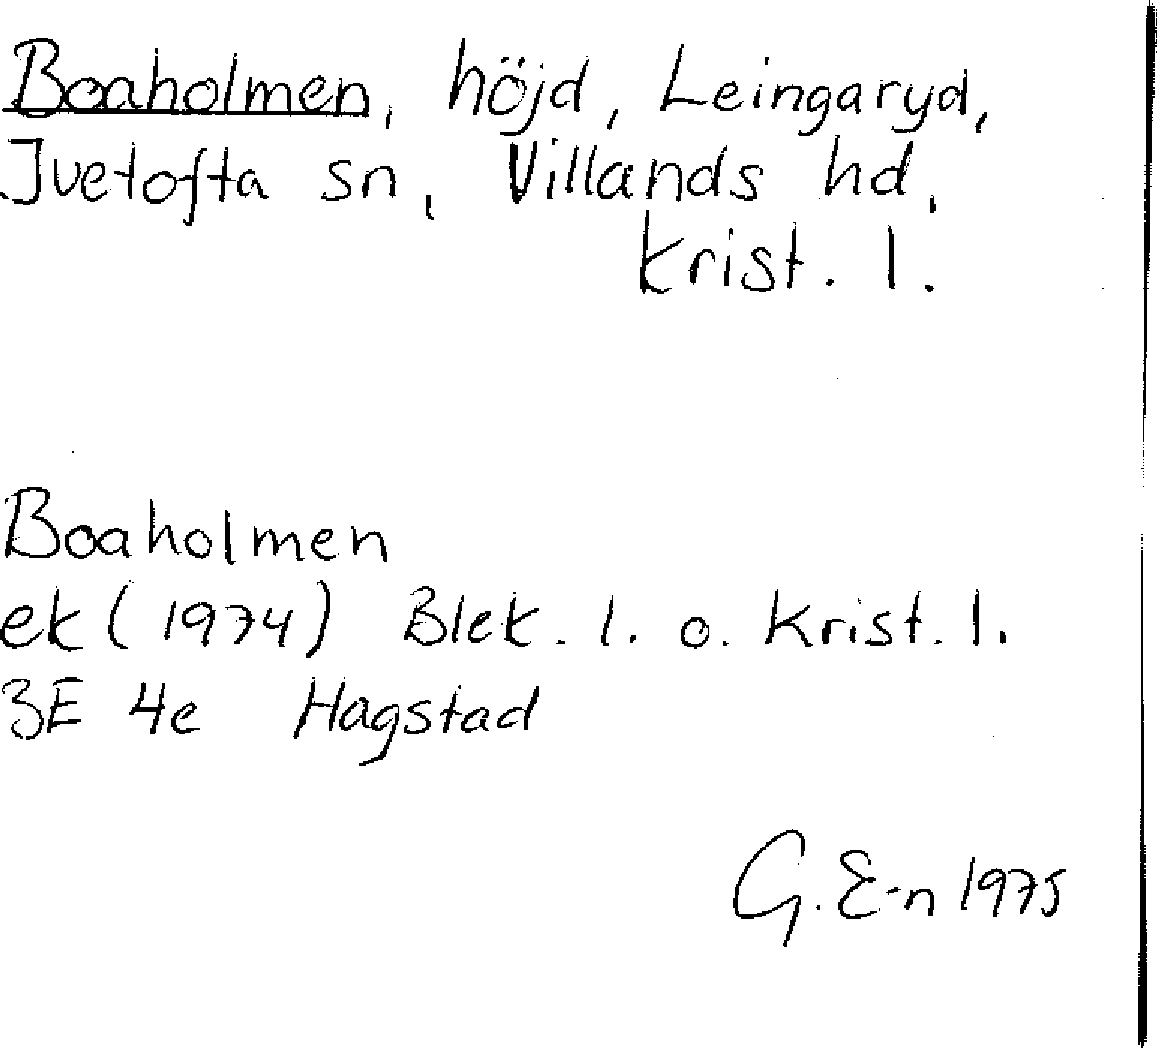 Boaholmen, höjd, Leingaryd,
Ivetofta sn, Villands hd,
Krist. l.
Boaholmen
ek (1974) Blek. l. o. Krist. l.
3E 4e Hagstad
G. E-n 1975